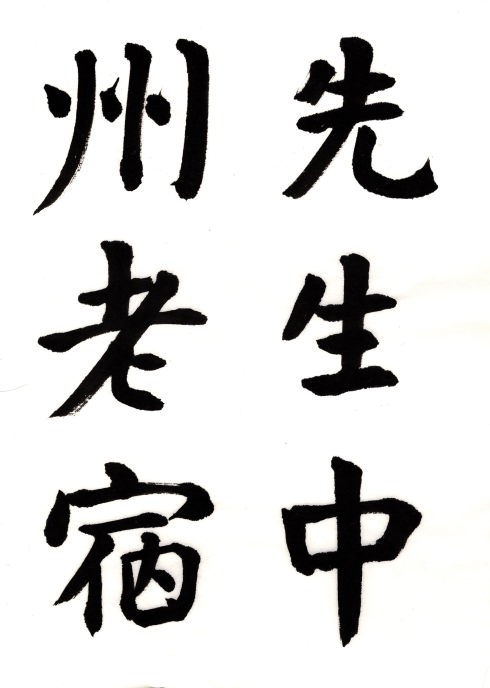 先生中
州老宿